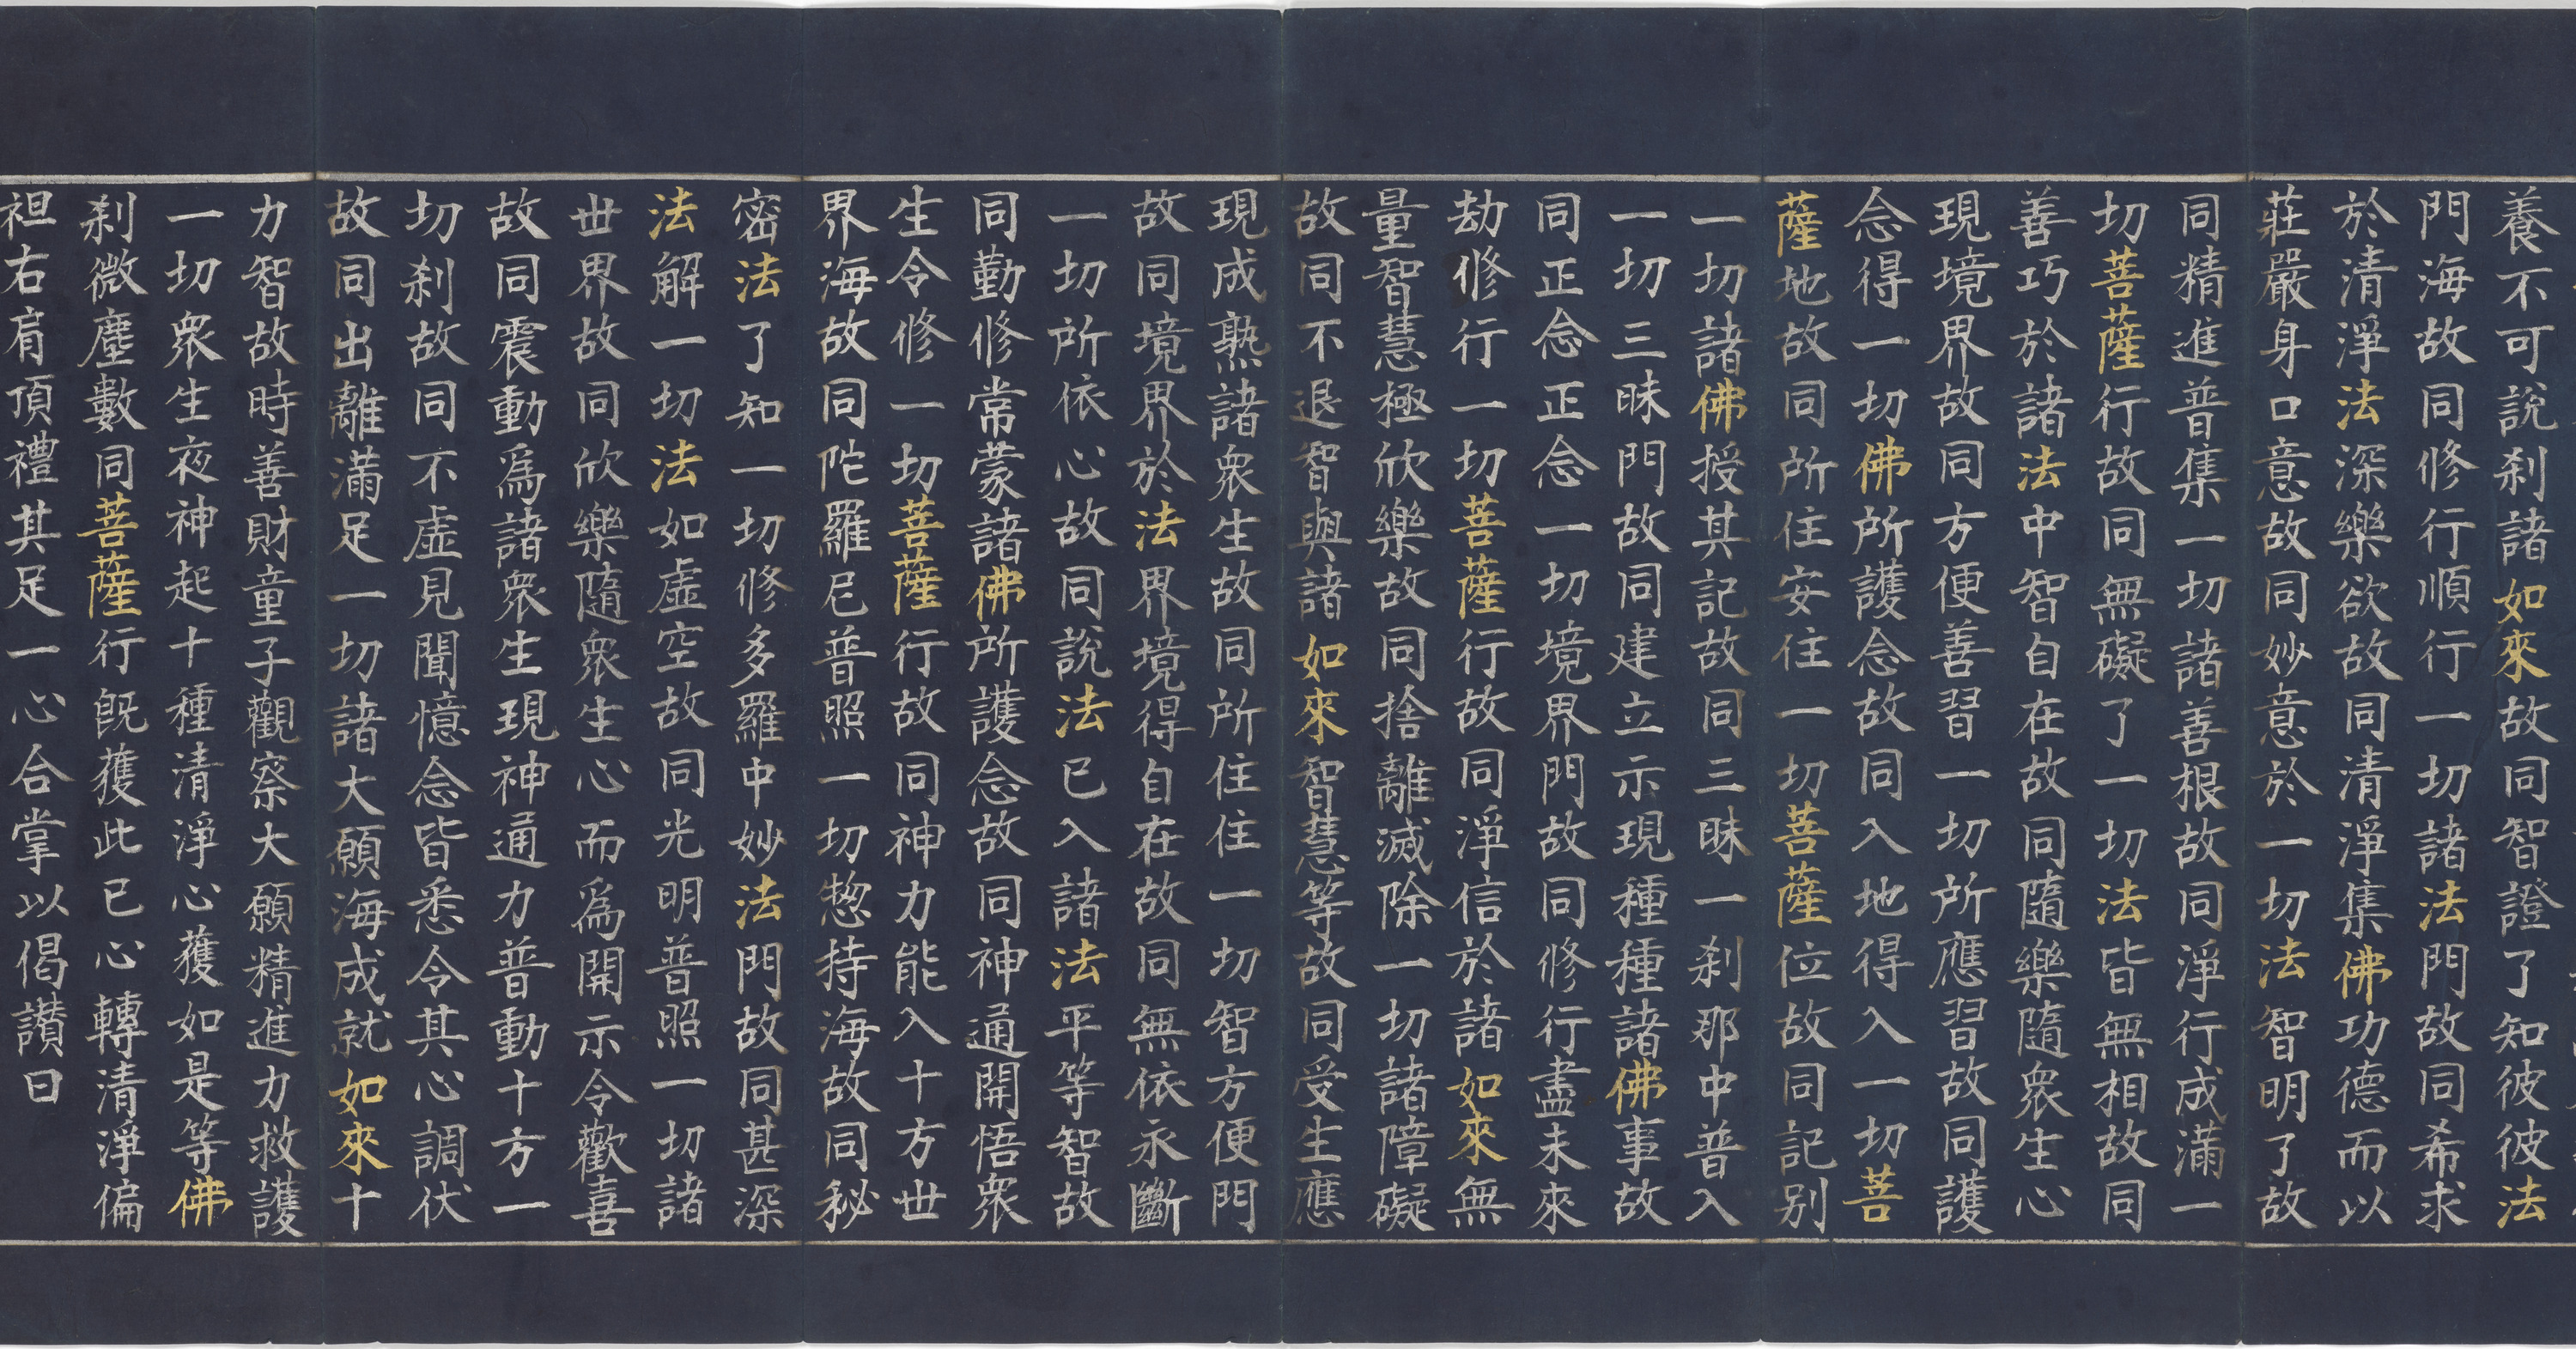 養不可說刹諸如來故同智證了知彼彼法
門海故同修行順行一切諸法門故同希求
於清淨法深樂欲故同清淨集佛功德而以
莊嚴身口意故同妙意於一切法智明了故
同精進普集一切諸善根故同淨行成滿一
切菩薩行故同無礙了一切法皆無相故同
善巧於諸法中智自在故同隨樂隨衆生心
現境界故同方便善習一切所應習故同護
念得一切佛所護念故同入地得入一切菩
薩地故同所住安住一切菩薩位故同記別
一切諸佛授其記故同三昧一刹那中普入
一切三昧門故同建立示現種種諸佛事故
同正念正念一切境界門故同修行盡未來
劫修行一切菩薩行故同淨信於諸如來無
量智慧極欣樂故同捨離滅除一切諸障礙
故同不退智與諸如來智慧等故同受生應
現成熟諸衆生故同所住住一切智方便門
故同境界於法界境得自在故同無依永斷
一切所依心故同說法已入諸法平等智故
同勤修常蒙諸佛所護念故同神通開悟衆
生令修一切菩薩行故同神力能入十方世
界海故同陀羅尼普照一切惣持海故同秘
密法了知一切修多羅中妙法門故同甚深
法解一切法如虛空故同光明普照一切諸
世界故同欣樂隨衆生心而爲開示令歡喜
故同震動爲諸衆生現神通力普動十方一
切刹故同不虛見聞憶念皆悉令其心調伏
故同出離滿足一切諸大願海成就如來十
力智故時善財童子觀察大願精進力救護
一切衆生夜神起十種清淨心獲如是等佛
刹微塵數同菩薩行旣獲此已心轉清淨偏
袒右肩頂禮其足一心合掌以偈讚曰